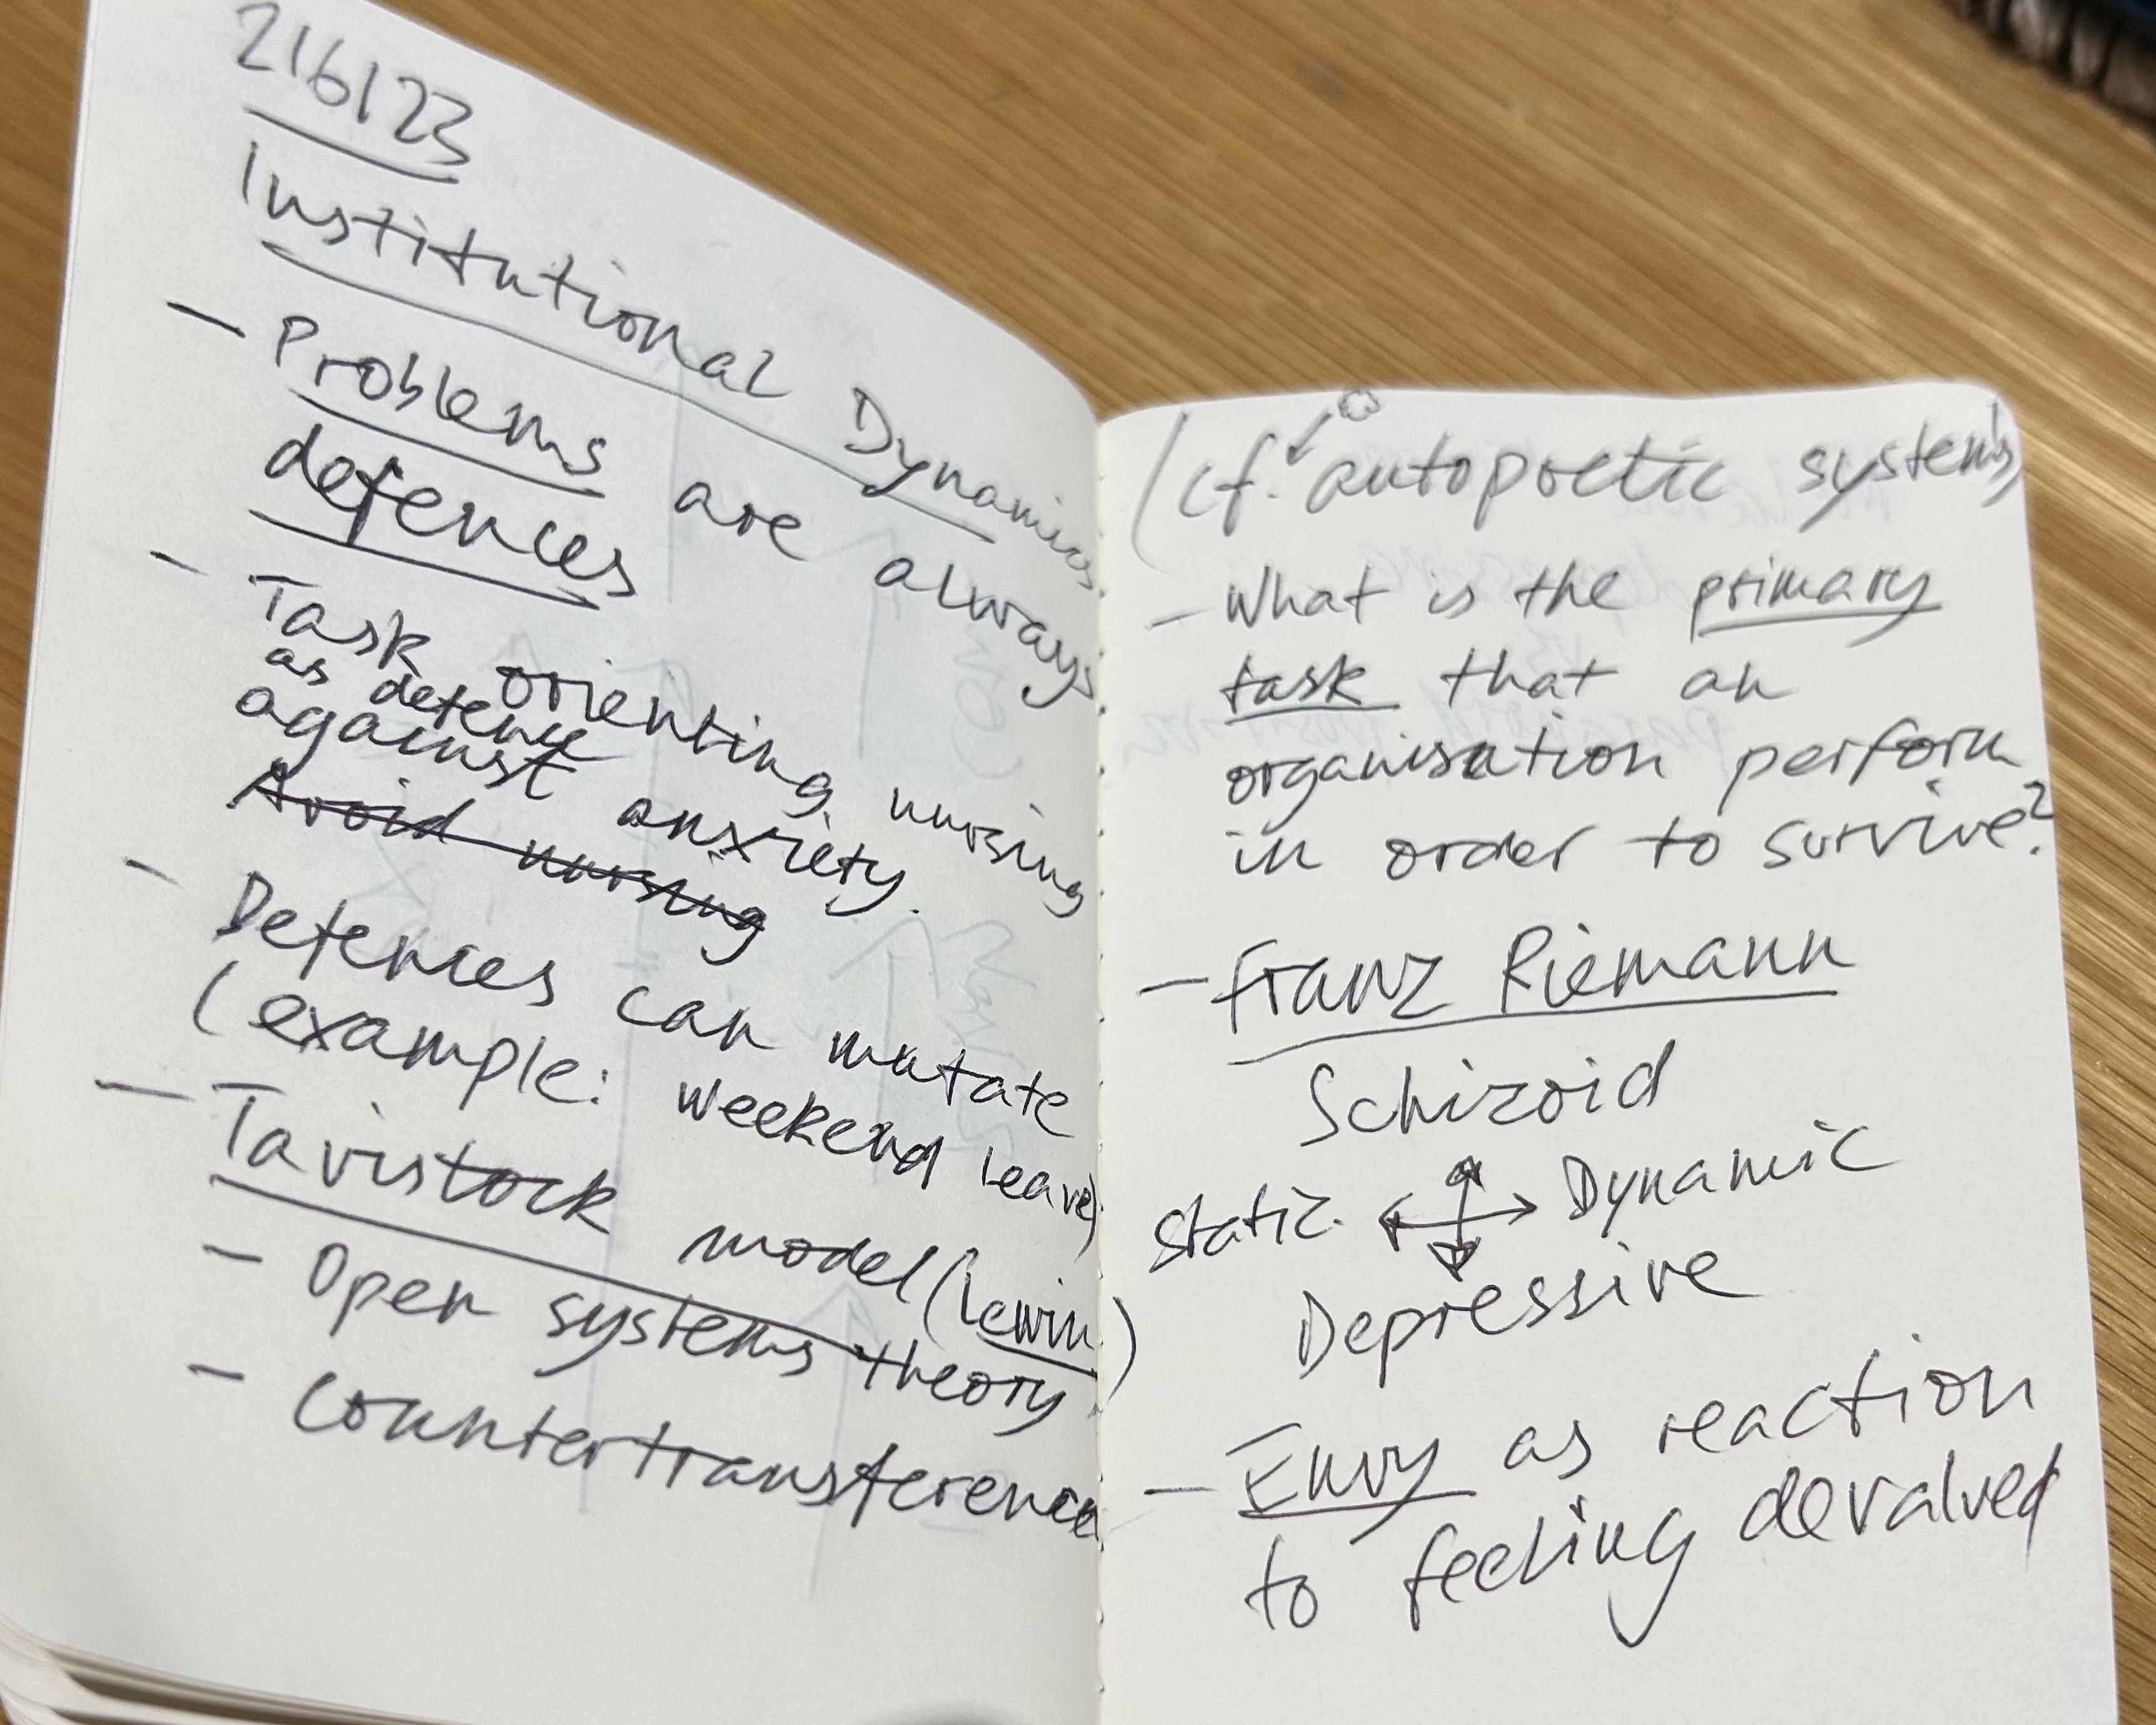 2/6/23
Institutional Dynamics
- Problems are always
defences
- Task orienting nursing
as defence
against anxiety.
Avoid nursing
- Defences can mutate
(example: weekend leave)
- Tavistock model (Lewin)
- Open systems theory
- Countertransference
(cf. autopoetic systems)
- What is the primary
task that an
organisation perform
in order to survive?
- Franz Riemann
Schizoid
Static Dynamic
Depressive
- Envy as reaction
to feeling devalued